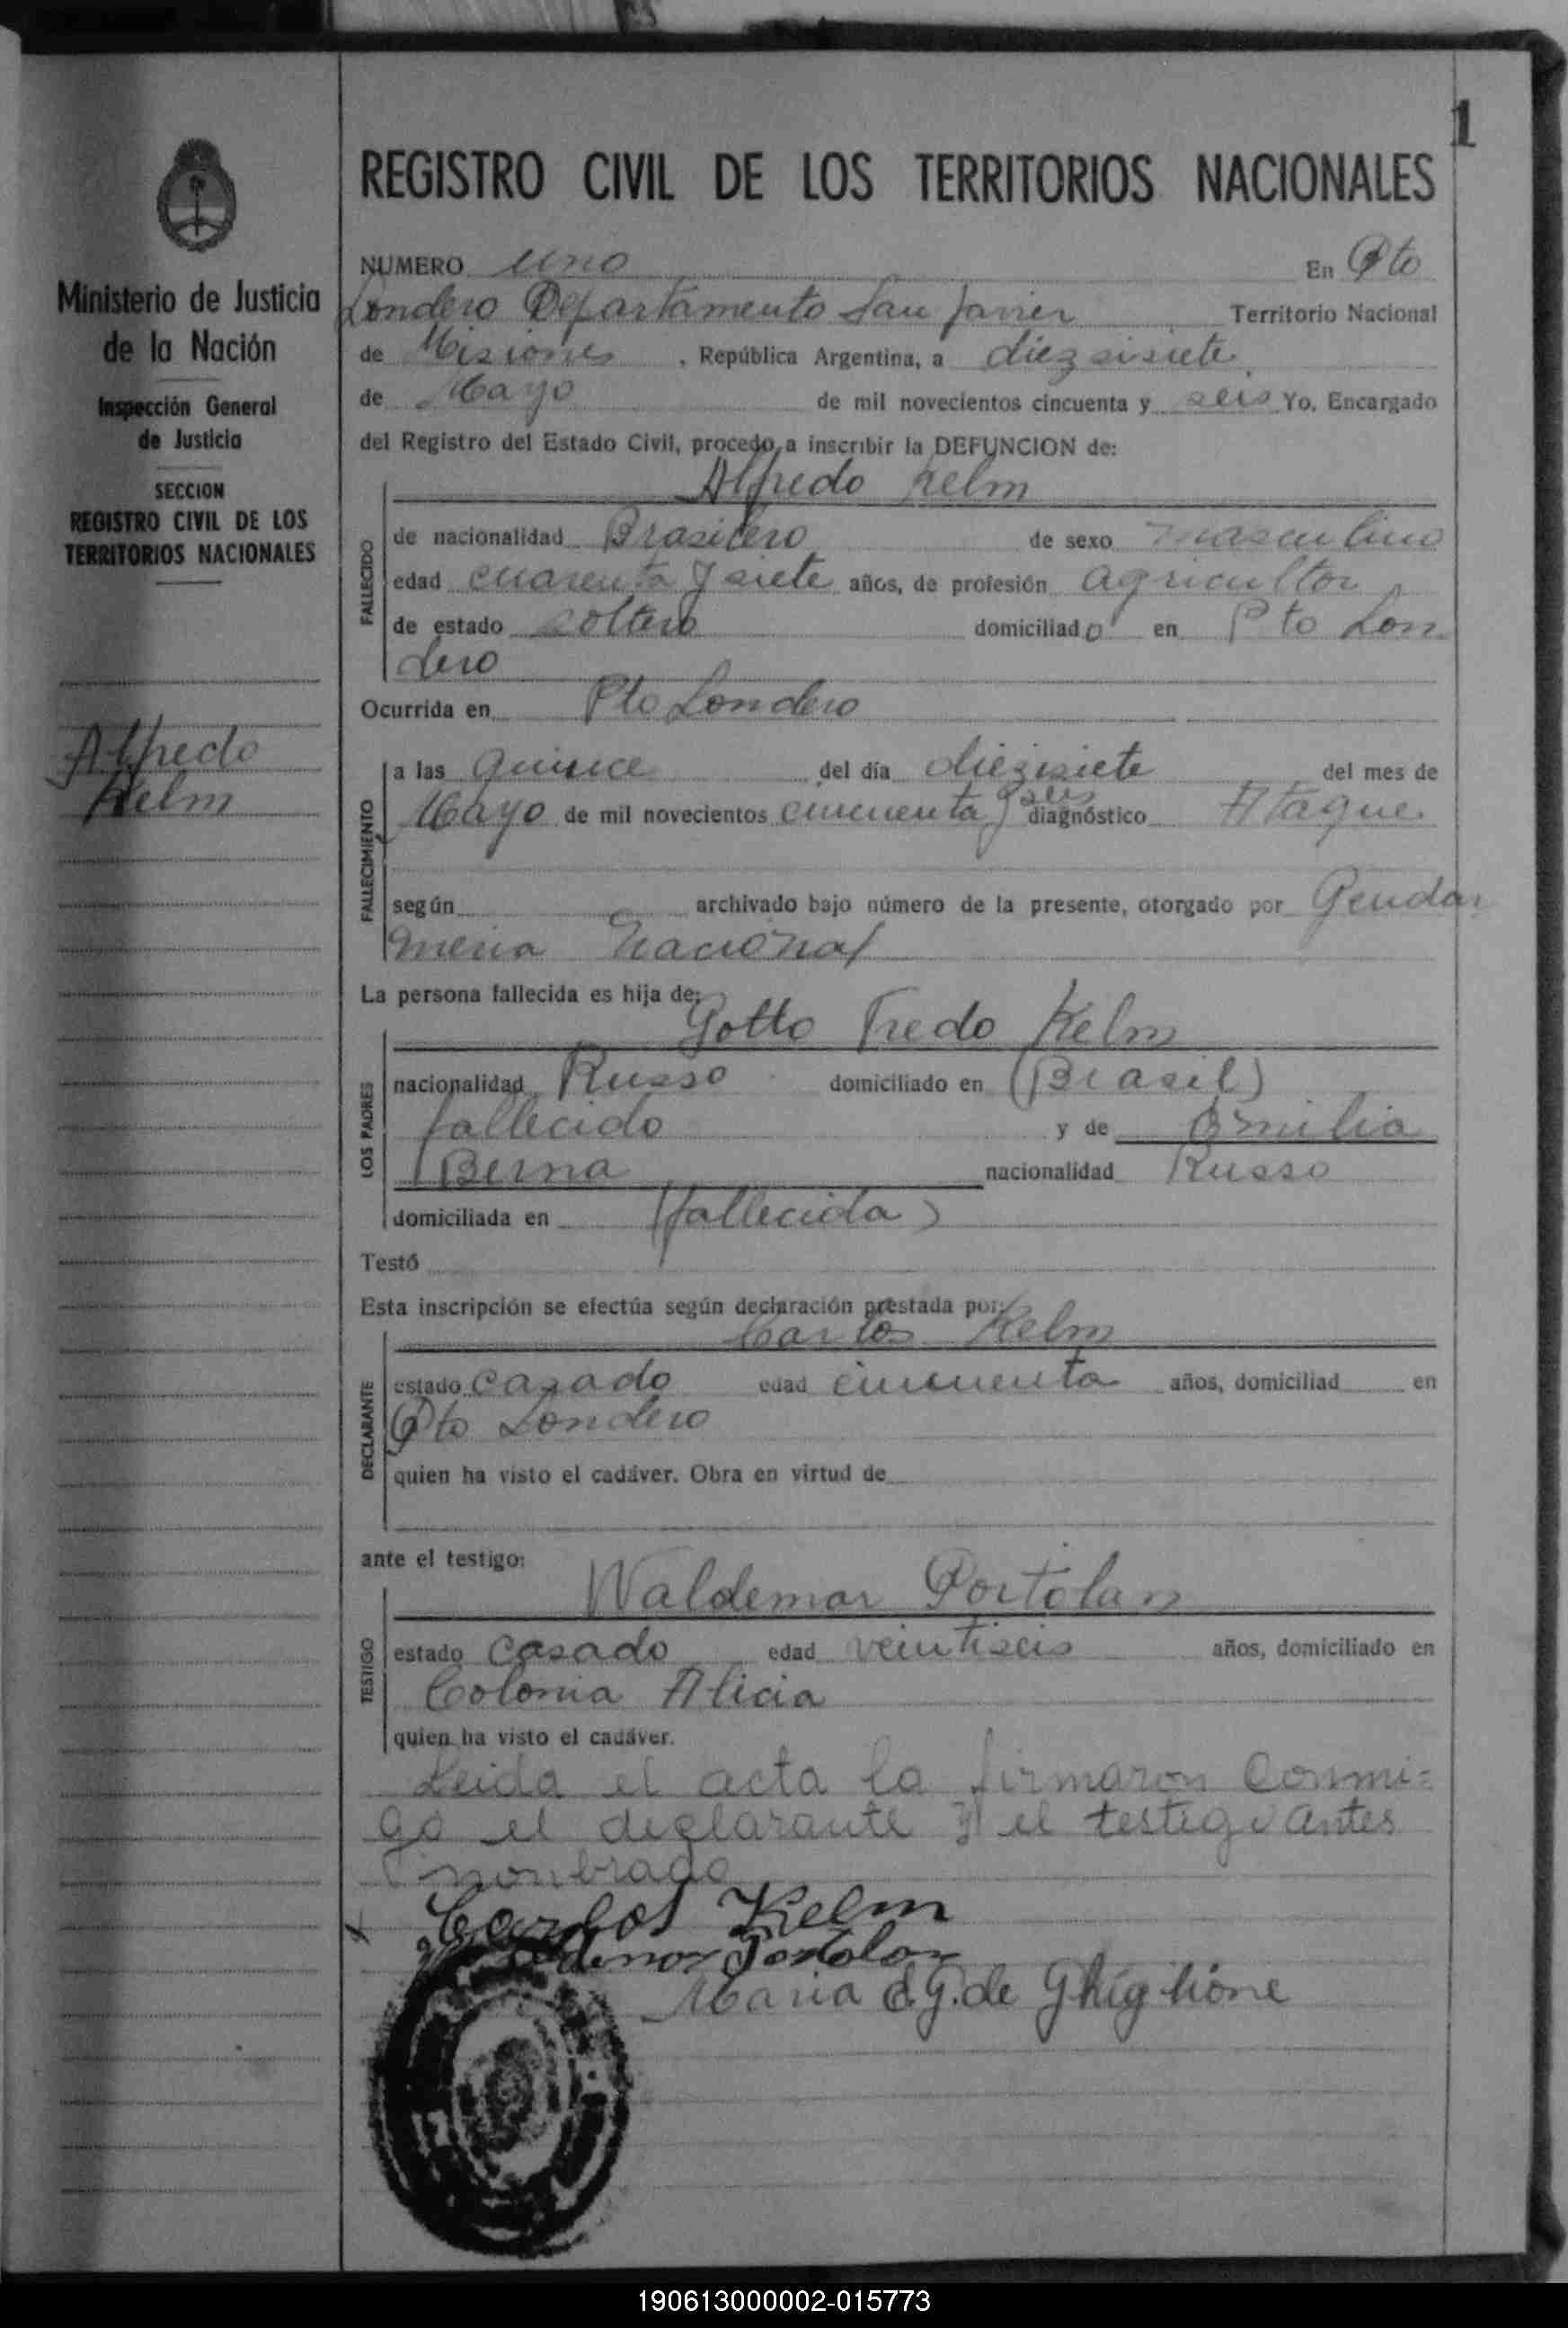 1
REGISTRO CIVIL DE LOS TERRITORIOS NACIONALES
Ministerio de Justicia
de la Nación
Inspección General
de Justicia
SECCION
REGISTRO CIVIL DE LOS
TERRITORIOS NACIONALES
Alfredo
Kelm
NUMERO uno En Pto
Londero Departamento San Javier Territorio Nacional
de Misiones , República Argentina, a diezsisiete
de Mayo de mil novecientos cincuenta y seis Yo, Encargado
del Registro del Estado Civil, procedo a inscribir la DEFUNCION de:
Alfredo Kelm
FALLECIDO
de nacionalidad Brasilero de sexo masculino
edad cuarenta y siete años, de profesión agricultor
de estado soltero domiciliado en Pto Lon
dero
Ocurrida en Pto Londero
FALLECIMIENTO
a las Quince del día diezisiete del mes de
Mayo de mil novecientos cincuenta y seis diagnóstico Ataque
según archivado bajo número de la presente, otorgado por Gendar
meria Nacional
La persona fallecida es hija de:
Gotto Fredo Kelm
LOS PADRES
nacionalidad Russo domiciliado en (Brasil)
fallecido y de Emilia
Berna nacionalidad Russo
domiciliada en (fallecida)
Testó
Esta inscripción se efectúa según declaración prestada por:
Carlos Kelm
DECLARANTE
estado casado edad cincuenta años, domiciliad en
Pto Londero
quien ha visto el cadáver. Obra en virtud de
ante el testigo:
Waldemar Portolan
TESTIGO
estado casado edad veintiseis años, domiciliado en
Colonia Alicia
quien ha visto el cadáver.
Leida el acta la firmaron conmi=
go el declarante y el testigo antes
nonbrado
Carlos Kelm
Portolan
Maria E. G. de Ghiglione
190613000002-015773